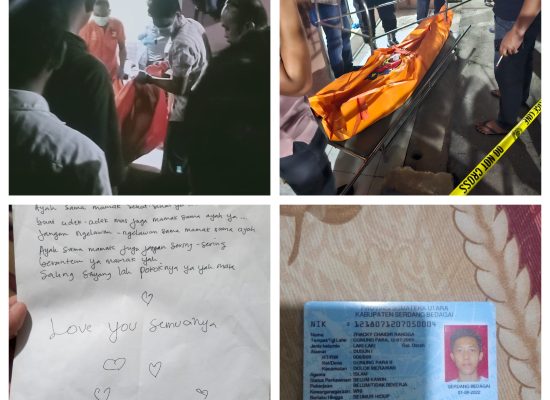 DO NOT CROSS
Ayah sama mamak sehat-sehat ya
buat adek-adek mas jaga mamak sama ayah ya...
Jangan ngelawan-ngelawan sama mamak sama ayah
Ayah sama mamak juga jangan sering-sering
berantem ya mamak yah
Saling Sayang lah pokoknya ya yah mak
Love you semuanya
PROVINSI SUMATERA UTARA
KABUPATEN SERDANG BEDAGAI
NIK : 1216071207050004
Nama
Tempat/Tgl Lahir
Jenis kelamin : LAKI-LAKI Gol. Darah
Alamat : DUSUN I
RT/RW
Kel/Desa : GUNUNG PARA II
Kecamatan : DOLOK MERAWAN
Agama : ISLAM
Status Perkawinan : BELUM KAWIN
Pekerjaan : BELUM/TIDAK BEKERJA
Kewarganegaraan : WNI
Berlaku Hingga : SEUMUR HIDUP
SERDANG BEDAGAI